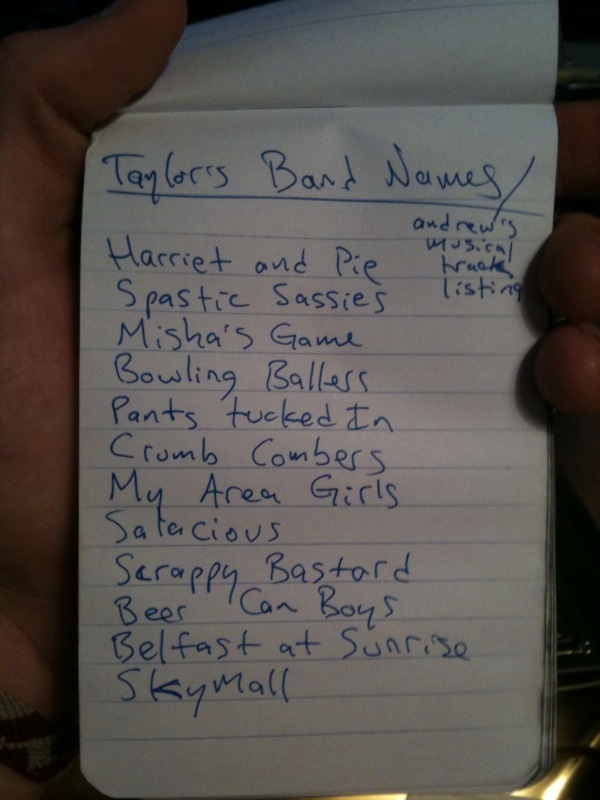 Taylor's Band Names/
andrew's
musical
track
listing
Harriet and Pie
Spastic Sassies
Misha's Game
Bowling Ballers
Pants tucked In
Crumb Combers
My Area Girls
Salacious
Scrappy Bastard
Beer Can Boys
Belfast at Sunrise
SkyMall